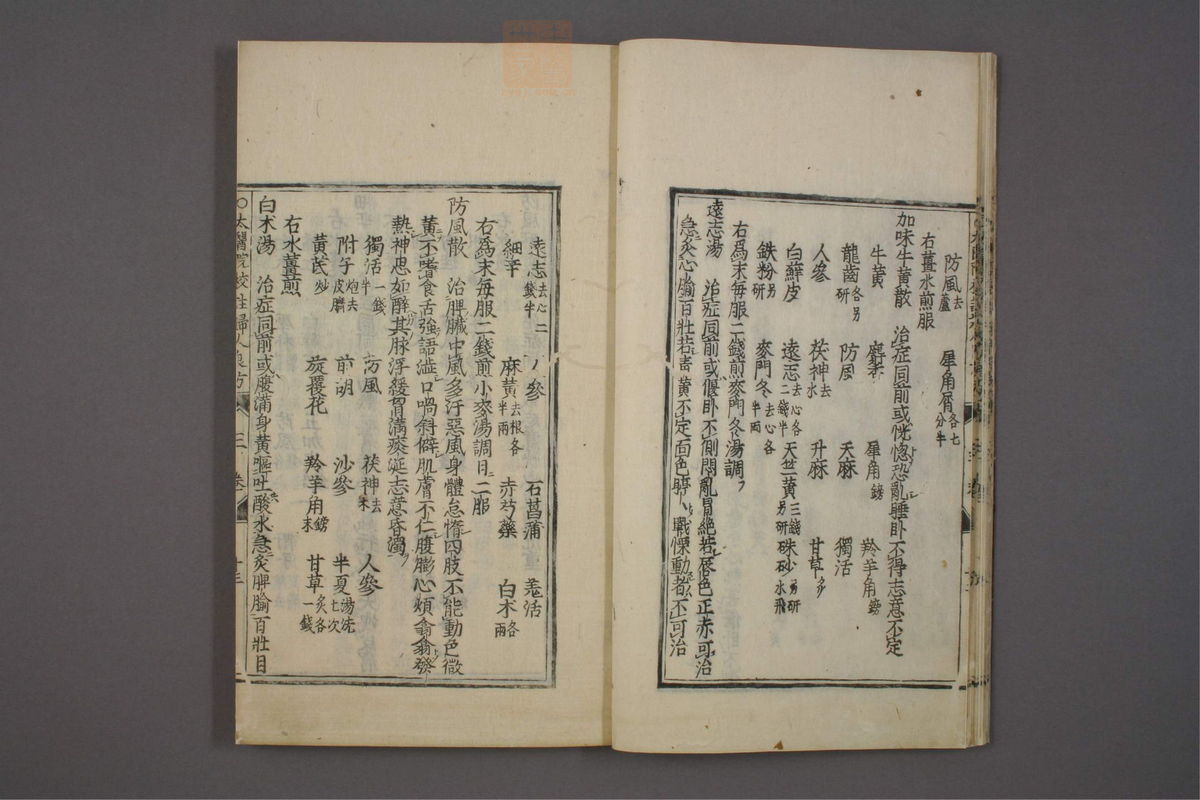 防風去蘆 犀角屑各七分半
右薑水煎服
加味牛黄散 治症同前或恍惚恐亂睡卧不得志意不定
牛黄 麝香 犀角鎊 羚羊角鎊
龍齒各另研 防風 天麻 獨活
人參 茯神去木 升麻 甘草炙
白蘚皮 遠志去心各二錢半 天竺黄三錢另研 硃砂另研水飛
鐵粉另研 麥門冬去心各半兩
右爲末每服二錢煎麥門冬湯調下
遠志湯 治症同前或偃卧不側悶亂冒絶若唇色正赤可治
急灸心腧百壯若青黄不定面色 戰慄動者不可治
遠志去心二錢半 人參 石菖蒲 羗活
細辛 麻黄去根各半兩 赤芍藥 白术各兩
右爲末每服二錢煎小麥湯調日二服
防風散 治脾臟中風多汗惡風身體怠惰四肢不能動色微
黄不嗜食舌強語澁口喎斜僻肌膚不仁腹膨心煩翕翕發
熱神思如醉其脉浮緩胷滿痰涎志意昏濁
獨活一錢半 防風 茯神去木 人參
附子炮去皮臍 前胡 沙參 半夏湯洗七次
黄芪炒 旋覆花 羚羊角鎊末 甘草炙各一錢
右水薑煎
白术湯 治症同前或腹滿身黄嘔吐酸水急灸脾腧百壯目
○太醫院校註婦人良方 三卷